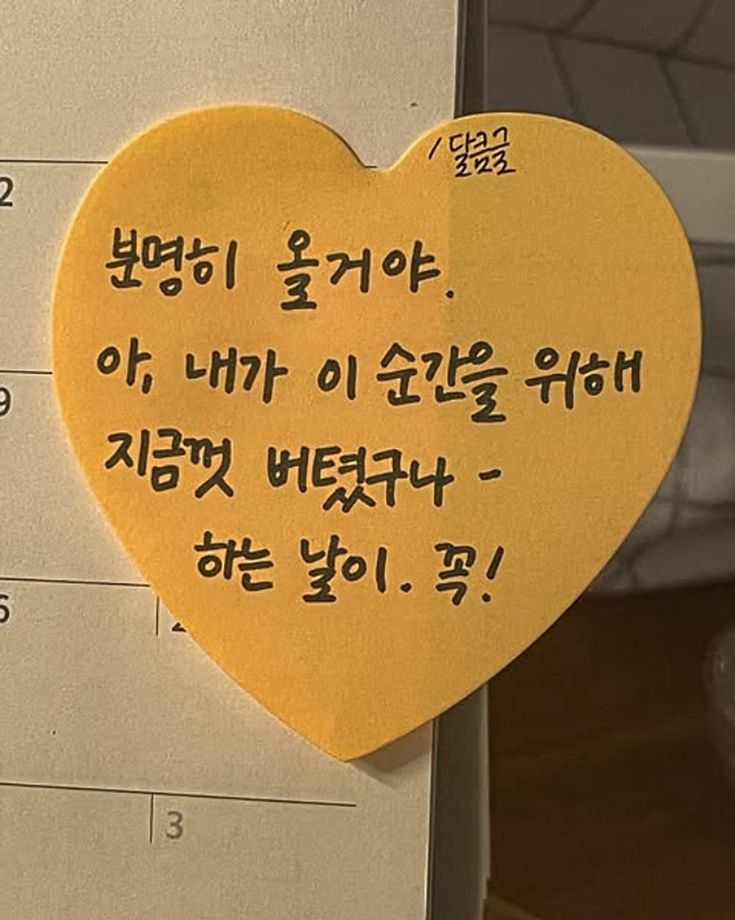 /달큼글
분명히 올거야.
아, 내가 이 순간을 위해
지금껏 버텼구나 -
하는 날이. 꼭!
2
9
6
2
3